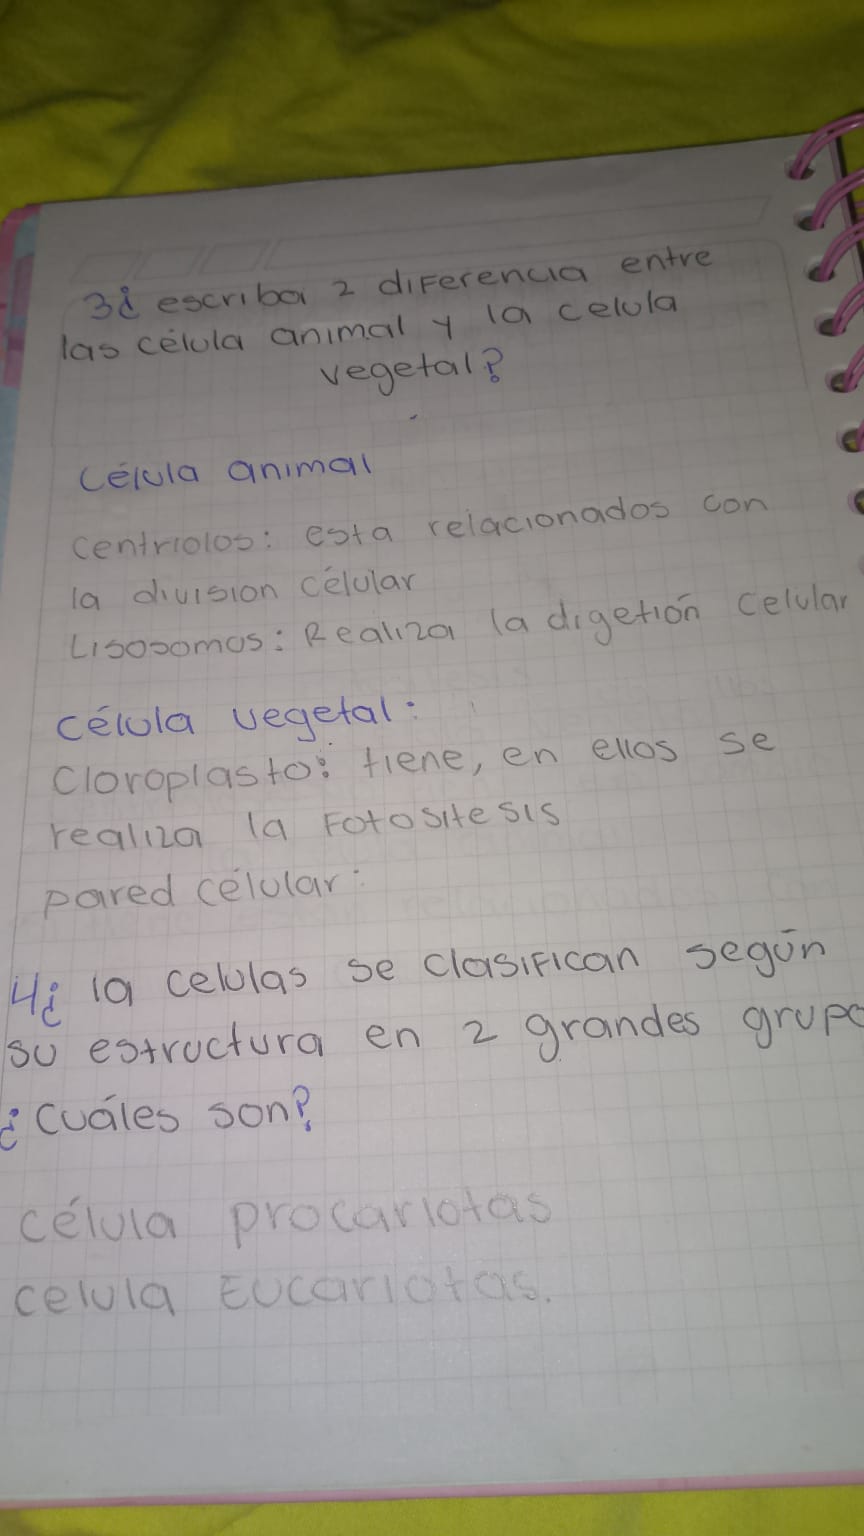 3¿ escriba 2 diferencia entre
las célula animal y la celula
vegetal?
célula animal
centriolos: esta relacionados con
la division célular
Lisosomas: Realiza la digetión celular
célula vegetal:
cloroplasto: tiene, en ellos se
realiza la Fotositesis
pared célular:
4¿ la celulas se clasifican según
su estructura en 2 grandes grupo
¿cuáles son?
célula procariotas
celula Eucariotas.